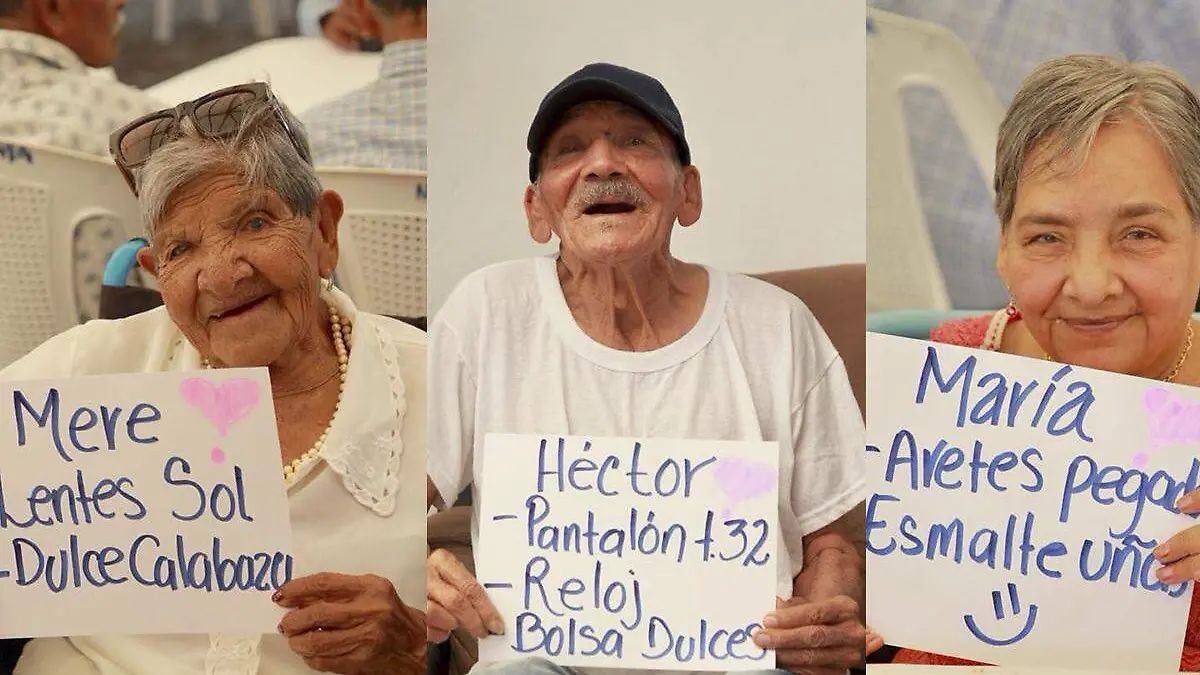 Mere
Lentes Sol
-Dulce Calabaza
Héctor
-Pantalón t.32
-Reloj
Bolsa Dulces
María
-Aretes pegad
Esmalte uñas